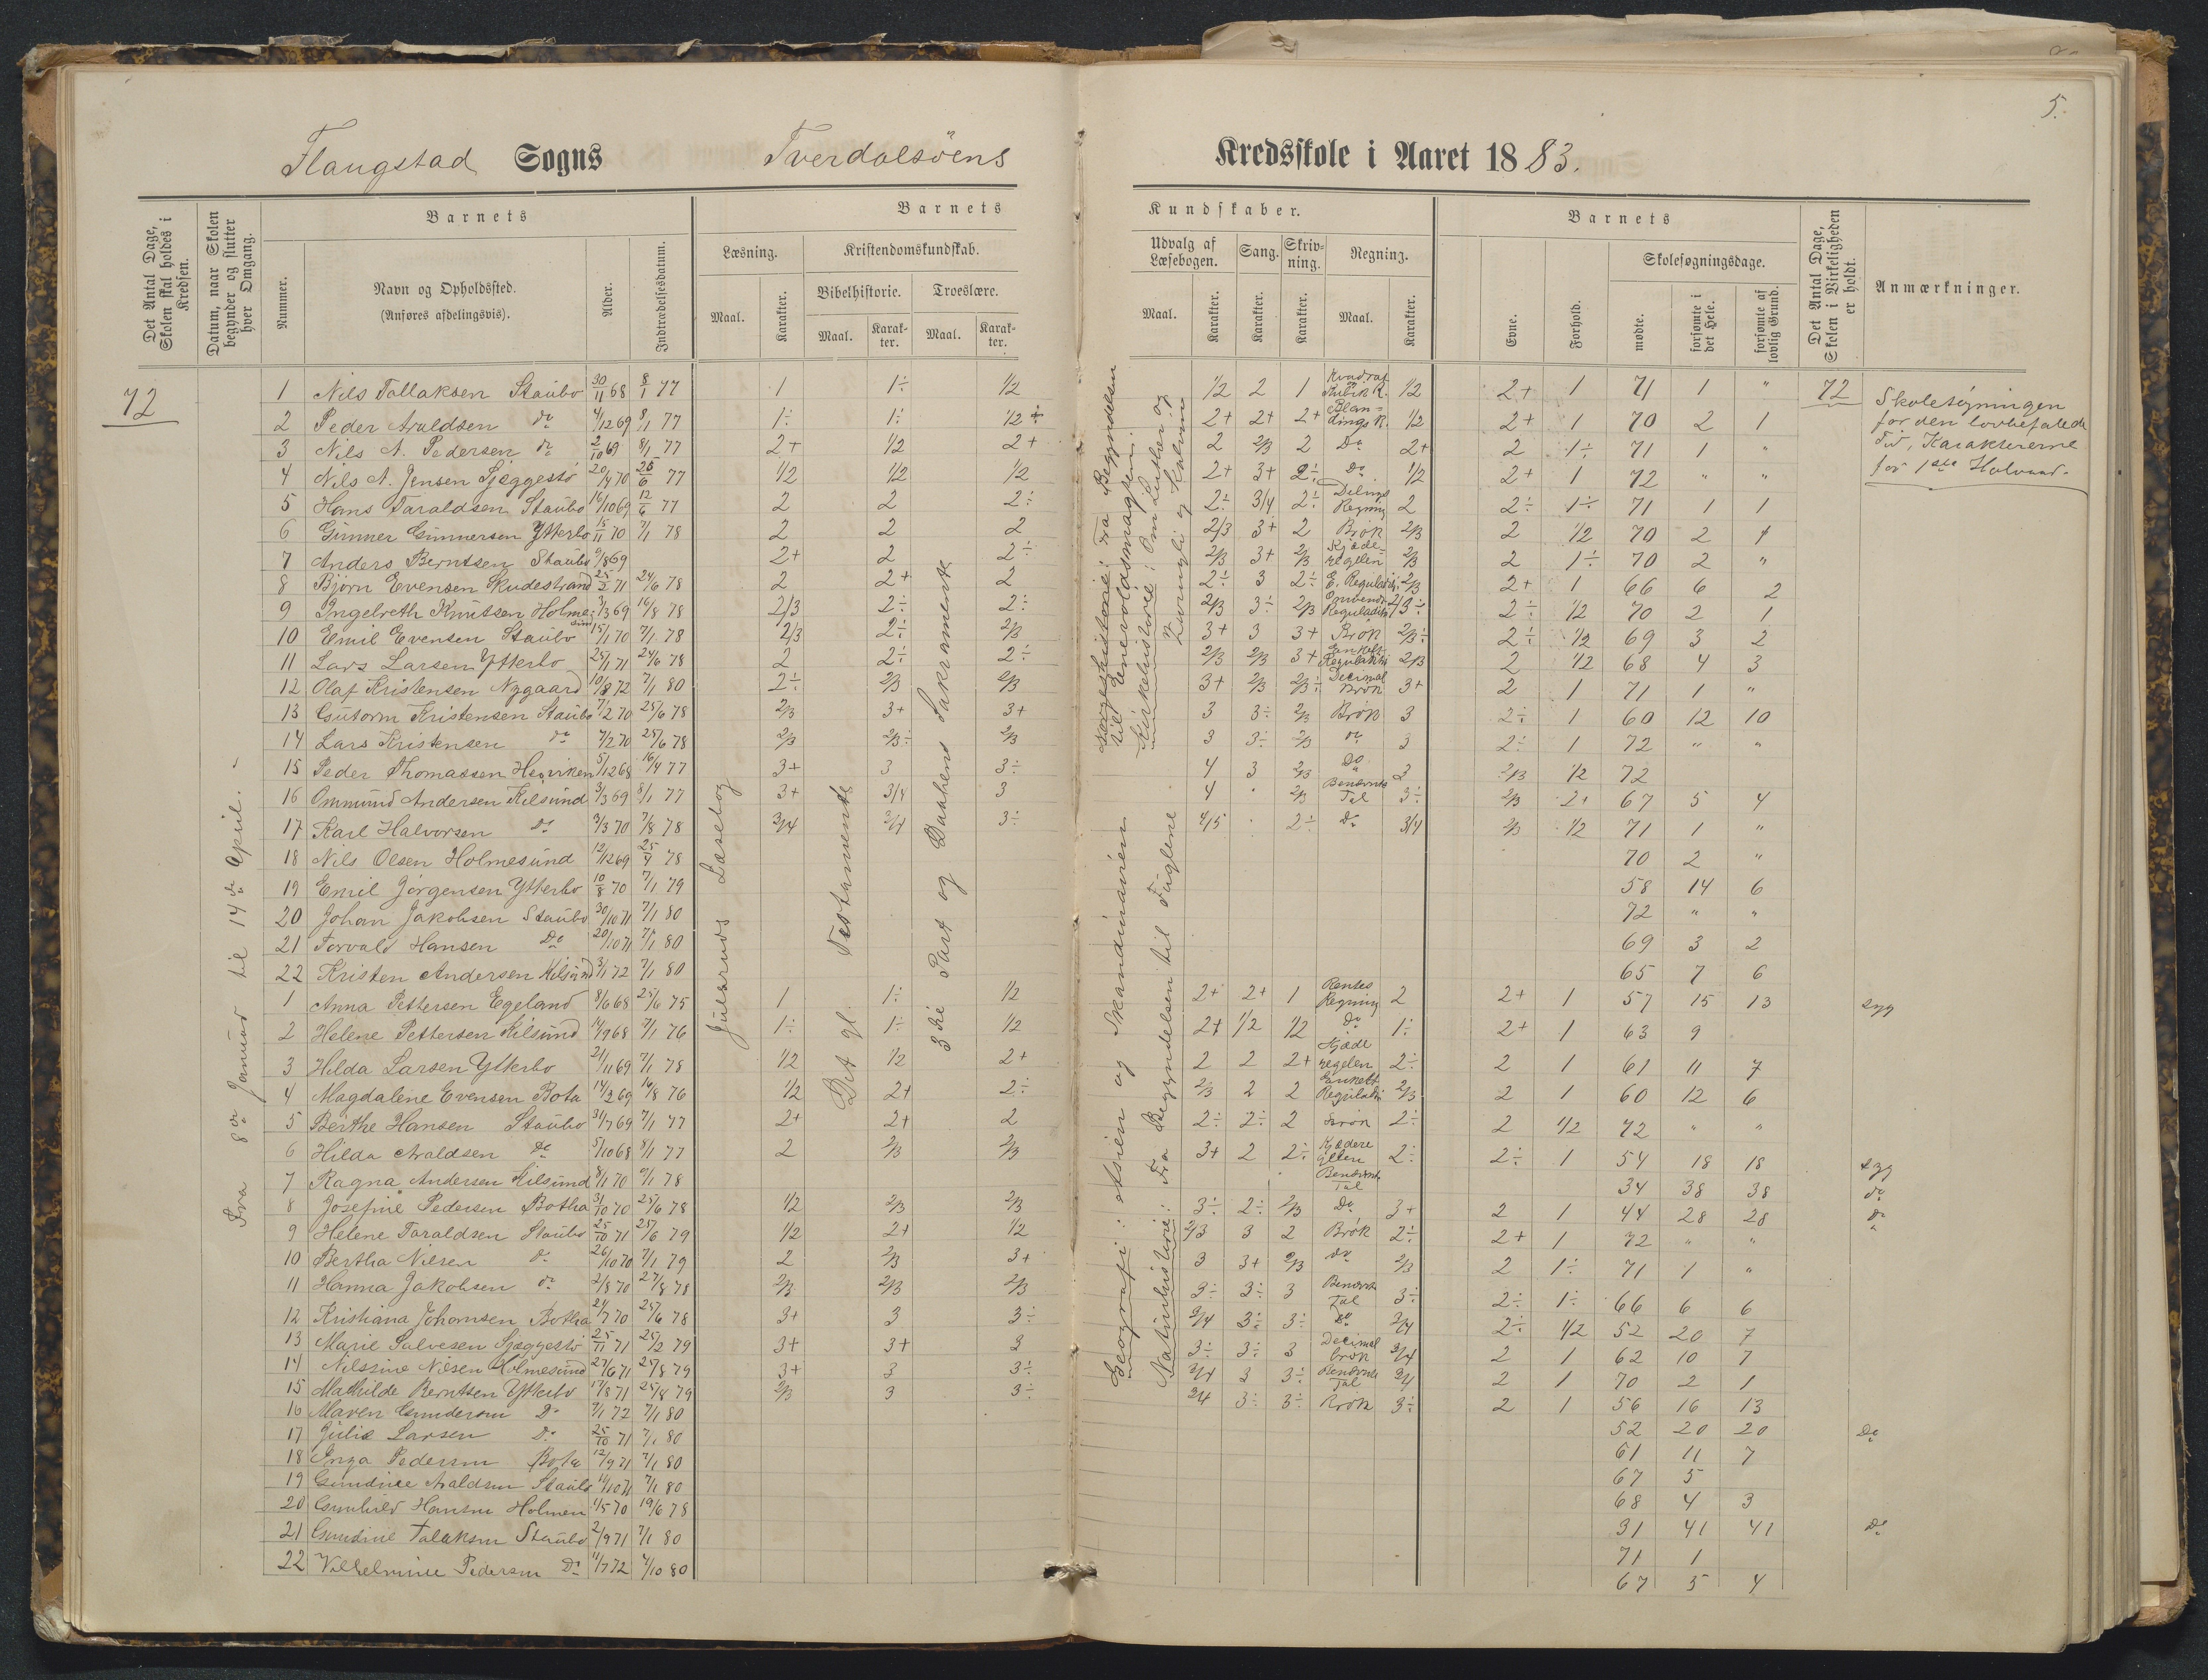 5.
Flaugstad Sogns Tverdalsöens Kredsskole i Aaret 1883.
Det Antal Dage, Skolen skal holdes i Kredsen.
Datum, naar Skolen begynder og slutter hver Omgang.
Barnets
Nummer.
Navn og Opholdssted.
(Anføres afdelingsvis).
Alder.
Indtrædelsesdatum.
Barnets Kundskaber.
Læsning.
Maal.
Karakter.
Kristendomskundskab.
Bibelhistorie.
Maal.
Karakter.
Troeslære.
Maal.
Karakter.
Udvalg af Læsebogen.
Maal.
Karakter.
Sang.
Karakter.
Skrivning.
Karakter.
Regning.
Maal.
Karakter.
Barnets
Evne.
Forhold.
Skolesøgningsdage.
mødte.
forsømte i det Hele.
forsømte af lovlig Grund.
Det Antal Dage, Skolen i Virkeligheden er holdt.
Anmærkninger.
72
Fra 8de Januar til 14de April.
Julsruds Læsebog
Det gl. Testamente
3die Part og Daabens Sakramente
Geografi: Asien og Skandinavien
Naturhistorie: Fra Begyndelsen til Fuglene
Kirkehistorie: Om Luther og Zwingli og Kalvin
til Enevoldsmagten.
72
Skolesøgningen
for den lovbefalede
Tid, Karaktererne
for 1ste Halvaar.
1 Nils Tallaksen Staubo 30/11 68 8/1 77 1 1÷ 1/2 1/2 2 1 Kvadrat Kubik R. 1/2 2+ 1 71 1 "
2 Peder Araldsen do 4/12 69 8/1 77 1÷ 1÷ 1/2÷ 2+ 2+ 2+ Blandings R. 1/2 2+ 1 70 2 1
3 Nils A. Pedersen do 2/10 69 8/1 77 2+ 1/2 2+ 2 2/3 2 Do 2+ 2 1÷ 71 1 "
4 Nils A. Jensen Sjæggestø 20/4 70 26/6 77 1/2 1/2 1/2 2+ 3+ 2÷ Do 1/2 2+ 1 72 " "
5 Hans Taraldsen Staubo 16/10 69 12/6 77 2 2 2÷ 2÷ 3/4 2÷ Delings Regning 2 2÷ 1÷ 71 1 1
6 Gunner Gunnersen Ytterbo 18/11 70 7/1 78 2 2 2 2/3 3+ 2 Brøk 2/3 2 1/2 70 2 1
7 Anders Berntsen Staubo 9/8 69 2+ 2 2÷ 2/3 3+ 2/3 Kjæderegelen 2/3 2 1÷ 70 2 "
8 Bjørn Evensen Skudestrand 25/2 71 24/6 78 2 2+ 2 2÷ 3 2÷ E. Reguladetri 2/3 2+ 1 66 6 2
9 Ingelreth Knutsen Holmesund 3/3 69 16/8 78 2/3 2÷ 2÷ 2/3 3÷ 2/3 Omvendt Reguladetri 2/3÷ 2÷ 1/2 70 2 1
10 Emil Evensen Staubo 15/1 70 7/1 78 2/3 2÷ 2/3 3+ 3 3+ Brøk 2/3÷ 2÷ 1/2 69 3 2
11 Lars Larsen Ytterbo 25/1 71 24/6 78 2 2÷ 2÷ 2/3 2/3 3+ Enkelt Reguladetri 2/3 2 1/2 68 4 3
12 Olaf Kristensen Nygaard 10/8 72 7/1 80 2÷ 2/3 2/3 3+ 2/3 2/3÷ Decimal Brøk 3+ 2 1 71 1 "
13 Gutorm Kristensen Staubo 7/2 70 25/6 78 2/3 3+ 3+ 3 3÷ 2/3 Brøk 3 2÷ 1 60 12 10
14 Lars Kristensen do 7/2 70 25/6 78 2/3 2/3÷ 2/3 3 3÷ 2/3 do 3 2÷ 1 72 " "
15 Peder Thomassen Heiviken 5/12 68 16/4 77 3+ 3 3÷ 4 3 2/3 Do 3 2/3 1/2 72
16 Ommund Andersen Kilsund 3/3 69 8/1 77 3+ 3/4 3 4 " 2/3 Benævnte Tal 3÷ 2/3 2+ 67 5 4
17 Karl Halvorsen Do 3/3 70 7/8 78 3/4 3/4 3÷ 4/5 " 2÷ Do 3/4 2/3 1/2 71 1 "
18 Nils Olsen Holmesund 12/12 69 25/4 78 70 2 "
19 Emil Jørgensen Ytterbo 10/8 70 7/1 79 58 14 6
20 Johan Jakobsen Staubo 30/10 71 7/1 80 72 " "
21 Torvald Hansen Do 20/10 71 7/1 80 69 3 2
22 Kristen Andersen Kilsund 3/1 72 7/1 80 65 7 6
1 Anna Pettersen Egeland 8/6 68 25/6 75 1 1÷ 1/2 2+ 2+ 1 Rentes Regning 2 2+ 1 57 15 13 syg
2 Helene Pettersen Kilsund 14/9 68 7/1 76 1÷ 1÷ 1/2 2+ 1/2 1/2 Do 1÷ 2+ 1 63 9
3 Hilda Larsen Ytterbo 21/11 69 7/1 78 1/2 1/2 2+ 2 2 2+ Kjæderegelen 2÷ 2 1 61 11 7
4 Magdalene Evensen Bota 14/2 69 16/8 76 1/2 2+ 2÷ 2/3 2 2 Enkelt Reguladetri 2/3 2 1 60 12 6
5 Berthe Hansen Staubo 31/7 69 7/1 77 2+ 2+ 2 2÷ 2÷ 2 Brøk 2÷ 2 1/2 72 " "
6 Hilda Araldsen Do 5/10 68 8/1 77 2 2/3 2/3 3+ 2 2÷ Kjæderegelen 2÷ 2÷ 1 54 18 18 syg
7 Ragna Andersen Kilsund 8/1 70 9/1 78 Benævnte Tal 34 38 38 do
8 Josefine Pedersen Botha 31/10 70 25/6 78 1/2 2/3 2/3 3÷ 2÷ 2/3 Do 3+ 2 1 44 28 28 do
9 Helene Taraldsen Staubo 25/10 71 25/6 79 1/2 2+ 1/2 2/3 3 2 Brøk 2÷ 2+ 1 72 " "
10 Bertha Nilsen do 26/10 70 7/1 79 2 2/3 3+ 3 3+ 2/3 do 2/3 2 1÷ 71 1 "
11 Hanna Jakobsen do 2/8 70 27/8 78 2/3 2/3 2/3 3÷ 3÷ 3 Benævnte Tal 3÷ 2÷ 1÷ 66 6 6
12 Kristiana Johansen Botha 21/7 70 25/6 78 3+ 3 3÷ 3/4 3÷ 3÷ Do 3/4 2÷ 1/2 52 20 7
13 Marie Salvesen Sjæggestø 25/11 71 25/2 79 3+ 3+ 3 3÷ 3÷ 3 Decimal brøk 3/4 2 1 62 10 7
14 Nilsine Nilsen Holmesund 27/6 71 25/8 79 3+ 3 3÷ 3/4 3 3÷ Benævnte Tal 3/4 2 1 70 2 1
15 Mathilde Berntsen Ytterbo 17/8 71 25/8 79 2/3 3 3÷ 3/4 3÷ 3÷ Brøk 3÷ 2 1 56 16 13
16 Maren Gundersen Do 7/1 72 7/1 80 52 20 20 Do
17 Julie Larsen Do 25/10 71 7/1 80 61 11 7
18 Inga Pedersen Bota 12/9 71 7/1 80 67 5
19 Gundine Araldsen Staubo 11/10 71 7/1 80 68 4 3
20 Gunhild Hansen Holmen 1/5 70 19/6 78 31 41 41 Do
21 Gundine Talaksen Staubo 2/9 71 7/1 80 71 1
22 Vilhelmine Pedersen Do 11/7 72 4/10 80 67 5 4